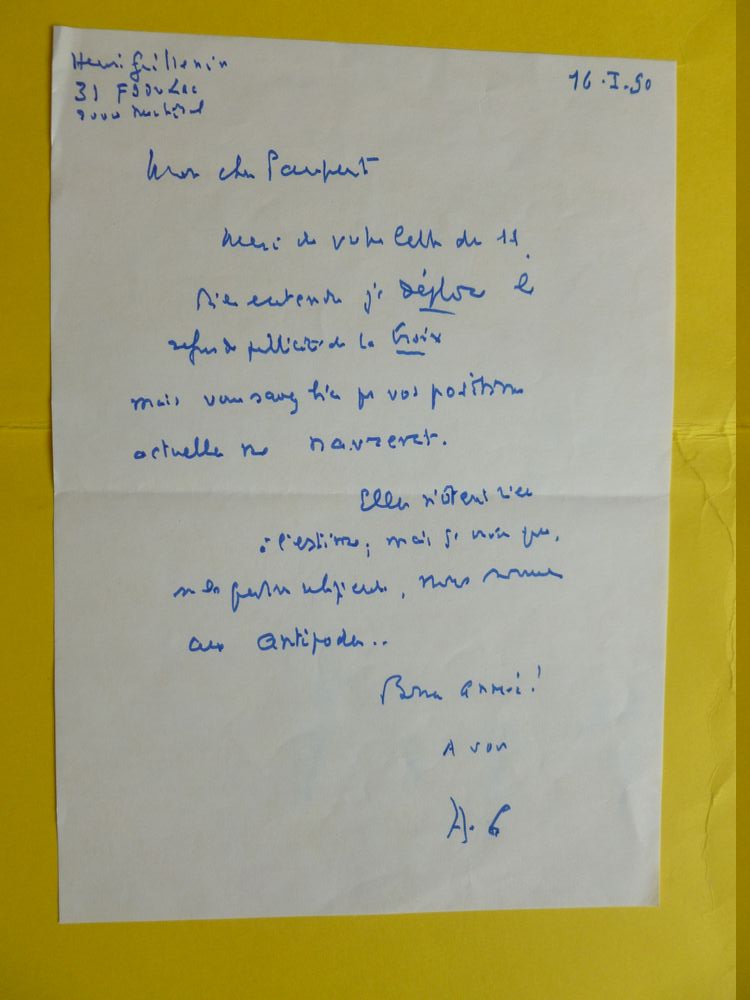 Henri Guillemin
31 Fbg du Lac
2000 Neuchâtel
16.I.90
Mon cher Paupert
Merci de votre lettre du 11.
Bien entendu je déplore le
refus de publicité de la Croix
mais vous savez bien que vos positions
actuelles me navrent.
Elles n'ôtent rien
à l'estime; mais je crois que,
sur les questions religieuses, nous sommes
aux antipodes..
Bonne année!
A vous
H. G